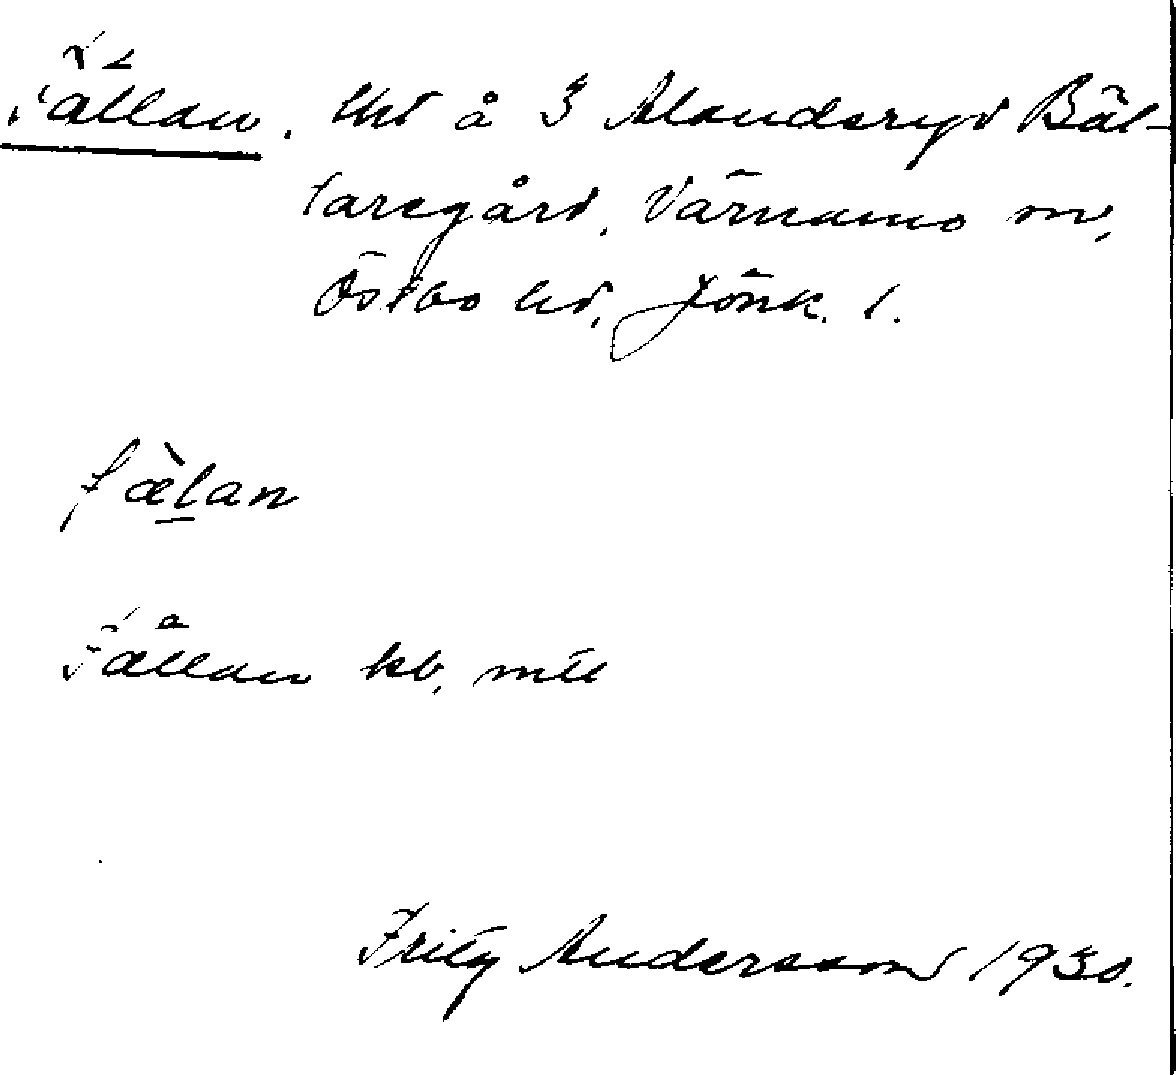 Fällan. Uts å 3 Alandsryd Bäl-
taregård, Värnamo sn,
Östbo hd, Jönk. l.
fæ̀lan
Fållan kb, mtl
Fritz Andersson 1930.